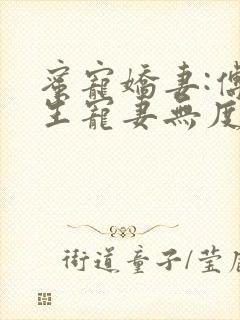 蜜寵嬌妻:傅
生寵妻無度
街道童子/莹